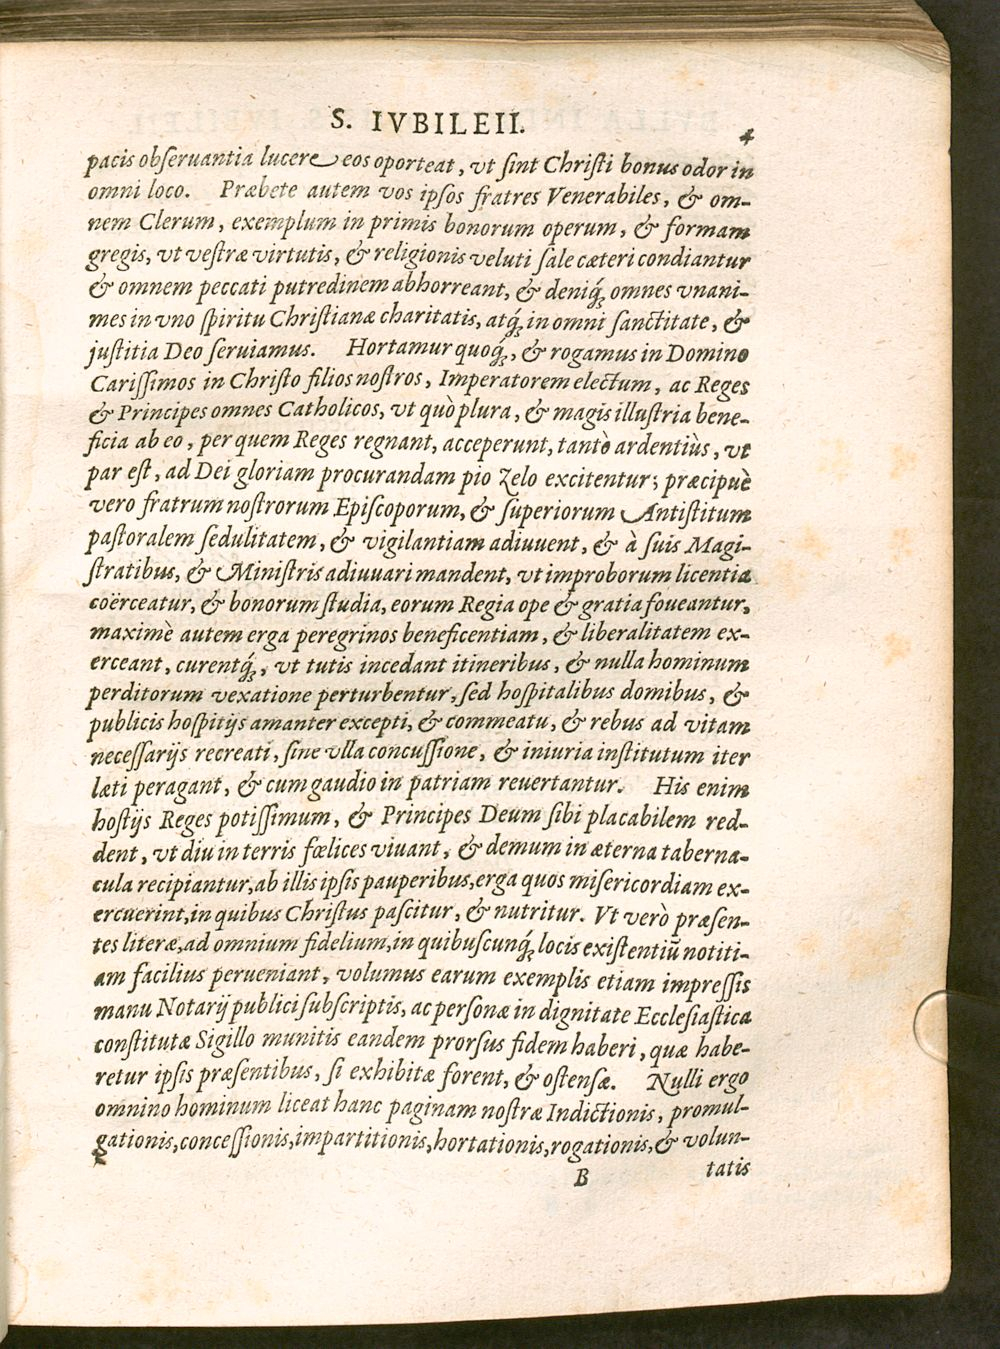 S. IVBILEII.
4
pacis obſeruantia lucere eos oporteat, vt ſint Chriſti bonus odor in
omni loco. Præbete autem vos ipſos fratres Venerabiles, & om-
nem Clerum, exemplum in primis bonorum operum, & formam
gregis, vt veſtræ virtutis, & religionis veluti ſale cæteri condiantur
& omnem peccati putredinem abhorreant, & deniq́; omnes vnani-
mes in vno ſpiritu Chriſtianæ charitatis, atq́; in omni ſanctitate, &
juſtitia Deo ſeruiamus. Hortamur quoq́;, & rogamus in Domino
Cariſſimos in Chriſto filios noſtros, Imperatorem electum, ac Reges
& Principes omnes Catholicos, vt quò plura, & magis illuſtria bene-
ficia ab eo, per quem Reges regnant, acceperunt, tantò ardentiùs, vt
par eſt, ad Dei gloriam procurandam pio Zelo excitentur; præcipuè
vero fratrum noſtrorum Epiſcoporum, & ſuperiorum Antiſtitum
paſtoralem ſedulitatem, & vigilantiam adiuuent, & à ſuis Magi-
ſtratibus, & Miniſtris adiuuari mandent, vt improborum licentia
coërceatur, & bonorum ſtudia, eorum Regia ope & gratia foueantur,
maximè autem erga peregrinos beneficentiam, & liberalitatem ex-
erceant, curentq́;, vt tutis incedant itineribus, & nulla hominum
perditorum vexatione perturbentur, ſed hoſpitalibus domibus, &
publicis hoſpitijs amanter excepti, & commeatu, & rebus ad vitam
neceſſarijs recreati, ſine vlla concuſſione, & iniuria inſtitutum iter
læti peragant, & cum gaudio in patriam reuertantur. His enim
hoſtijs Reges potiſſimum, & Principes Deum ſibi placabilem red-
dent, vt diu in terris fœlices viuant, & demum in æterna taberna-
cula recipiantur, ab illis ipſis pauperibus, erga quos miſericordiam ex-
ercuerint, in quibus Chriſtus paſcitur, & nutritur. Vt verò præſen-
tes literæ, ad omnium fidelium, in quibuſcunq́; locis exiſtentiũ notiti-
am facilius perueniant, volumus earum exemplis etiam impreſſis
manu Notarij publici ſubſcriptis, ac perſonæ in dignitate Eccleſiaſtica
conſtitutæ Sigillo munitis eandem prorſus fidem haberi, quæ habe-
retur ipſis præſentibus, ſi exhibitæ forent, & oſtenſæ. Nulli ergo
omnino hominum liceat hanc paginam noſtræ Indictionis, promul-
gationis, conceſſionis, impartitionis, hortationis, rogationis, & volun-
B
tatis